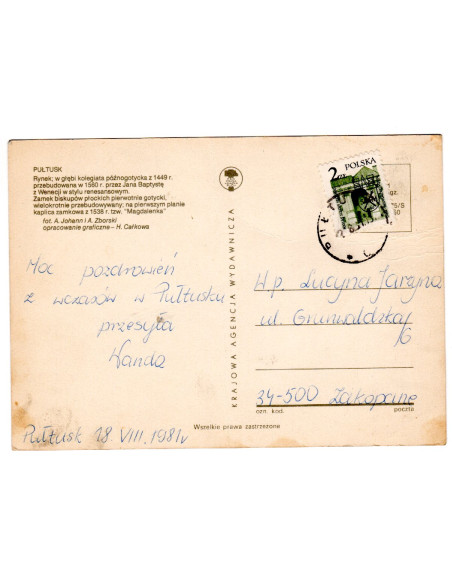 PUŁTUSK
Rynek; w głębi kolegiata późnogotycka z 1449 r.
przebudowana w 1560 r. przez Jana Baptystę
z Wenecji w stylu renesansowym.
Zamek biskupów płockich pierwotnie gotycki,
wielokrotnie przebudowywany; na pierwszym planie
kaplica zamkowa z 1538 r. tzw. "Magdalenka"
fot. A. Johann i A. Zborski
opracowanie graficzne – H. Całkowa
Moc pozdrowień
z wczasów w Pułtusku
przesyła
Wanda
Pułtusk 18.VIII.1981r
KRAJOWA AGENCJA WYDAWNICZA
Wszelkie prawa zastrzeżone
2 zł POLSKA
gr.
W.p. Lucyna Jarzyna
ul. Grunwaldzka
34-500 Zakopane
ozn. kod. poczta